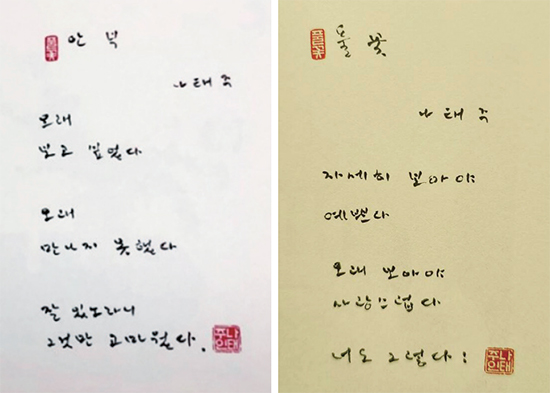 풀꽃 안 부
나 태 주
오래
보고 싶었다
오래
만나지 못했다
잘 있노라니
그것만 고마웠다.
나태주인
풀꽃 풀 꽃
나 태 주
자세히 보아야
예쁘다
오래 보아야
사랑스럽다
너도 그렇다!
나태주인